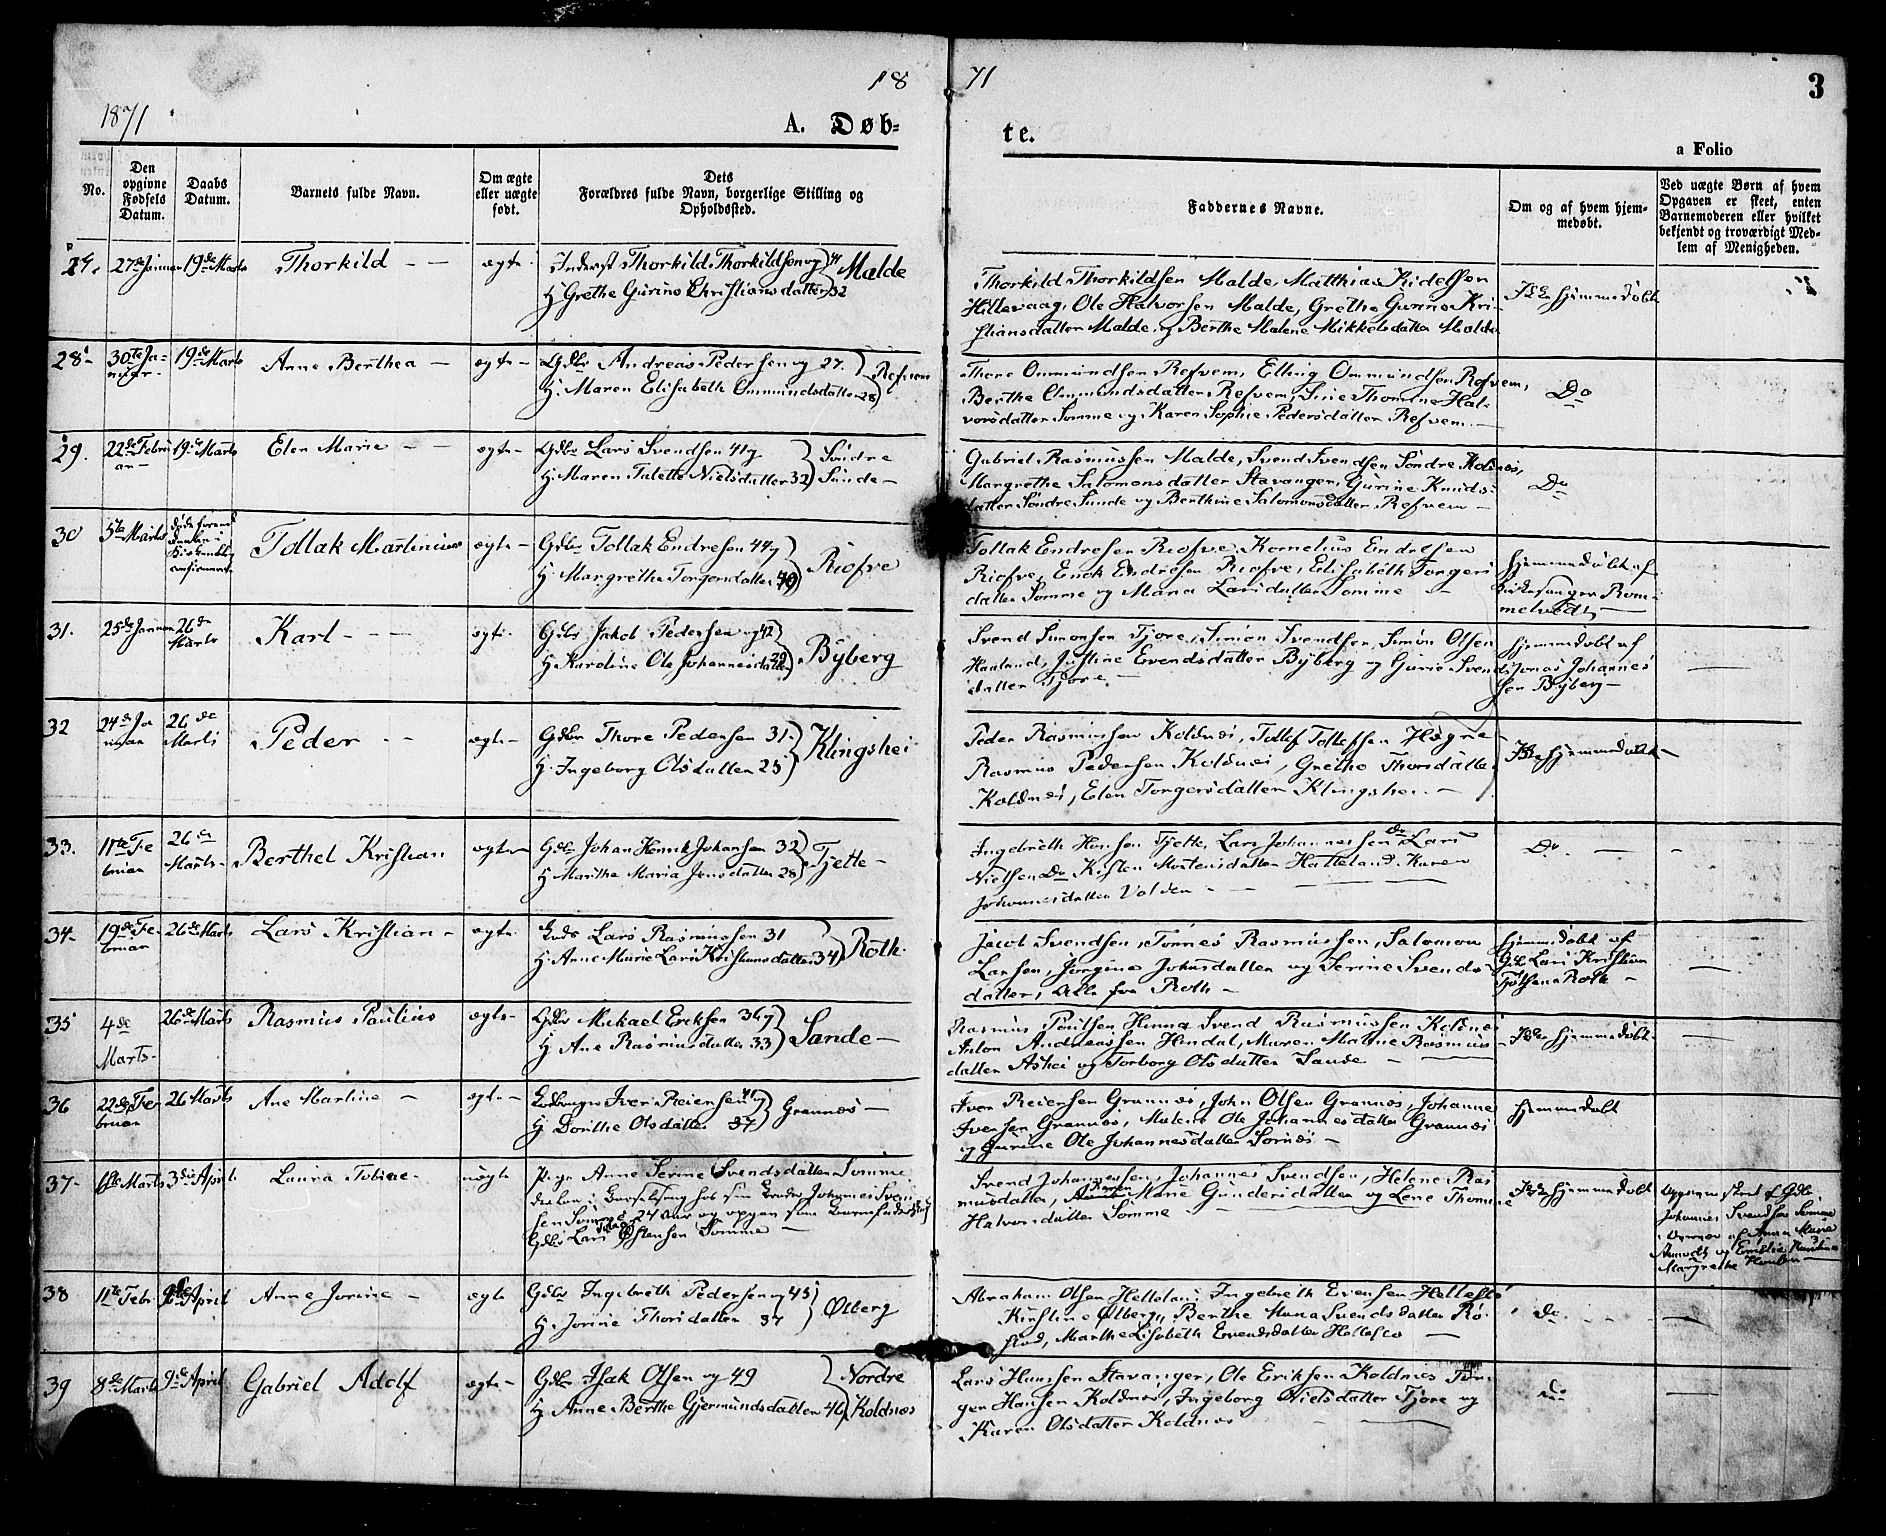 18 71
3
1871
A. Døb=
te.
a Folio
No.
Den opgivne Fødsels Datum.
Daabs Datum.
Barnets fulde Navn.
Om ægte eller uægte født.
Dets Forældres fulde Navn, borgerlige Stilling og Opholdssted.
Faddernes Navne.
Om og af hvem hjem-
medøbt.
Ved uægte Børn af hvem
Opgaven er skeet, enten
Barnemoderen eller hvilket
bekjendt og troværdigt Med-
lem af Menigheden.
27. 27de Januar 19de Marts Thorkild - - ægte Inderst Thorkild Thorkildsen og 41
H. Grethe Gurine Christiansdatter 32 Malde
Thorkild Thorkildsen Malde, Matthias Kidelsen
Hillevaag, Ole Halvorsen Malde, Grethe Gurine Kri-
stiansdatter Malde og Berthe Malene Mikkelsdatter Malde
Ikke hjemmedøbt
28- 30te Ja-
nuar- 19de Marts Anne Berthea - ægte- Gdbr Andreas Pedersen og 27.
H. Maren Elisabeth Ommundsdatter 28 Refvem
Thore Ommundsen Refvem, Elling Ommundsen Refvem,
Berthe Ommundsdatter Refvem, Sine Thomine Hal-
vorsdatter Sømme og Karen Sophie Pedersdatter Refvem -
Do
29. 22de Febru
ar- 19de Marts Elen Marie - - ægte- Gdbr Lars Svendsen 41 og
H. Maren Talette Nielsdatter 32 Søndre
Sunde -
Gabriel Rasmussen Malde, Svend Svendsen Søndre Kolnes,
Margrethe Salomonsdatter Stavanger, Gurine Knuds-
datter Søndre Sunde og Berthine Salomonsdatter Refvem -
Do
30 5te Marts Tollak Martinius ægte- Gdbr Tollak Endresen 44 og
H. Margrethe Torgersdatter 40 Riofve
Tollak Endresen Riofve, Kornelius Endresen
Riofve, Enok Endresen Riofve, Elisabeth Torgers
datter Sømme og Maria Larsdatter Sømme -
hjemmedøbt af
Kirkesanger Rom-
metvedt
31. 25de Januar 26de
Marts Karl - - - ægte- Gdbr Jakob Pedersen og 42
H. Karoline Ole Johannesdatter 29 Byberg
Svend Simonsen Tjore, Simon Svendsen, Simon Olsen
Haaland, Justine Evendsdatter Byberg og Gurie Svends
datter Tjore -
hjemmedøbt af
Jonas Johannes
sen Byberg -
32 24de Ja
nuar 26de
Marts Peder - - ægte- Gdbr Thore Pedersen 31-
H. Ingeborg Olsdatter 25 Klingshei
Peder Rasmussen Koldnes, Tollef Tollefsen
Rasmus Pedersen Koldnes, Grethe Thorsdatter
Koldnes, Elen Torgersdatter Klingshei -
Ikke hjemmedøbt -
33. 11te Fe
bruar 26de
Marts- Berthel Kristian ægte- Gdbr Johan Henrik Johansen 32
H. Marthe Maria Jensdatter 28 Tjette -
Ingebreth Hansen Tjette, Lars Johannessen Do Lars
Nielsen Do Kisten Mortensdatter Hatteland Karen
Johannesdatter Volden - -
Do. -
34- 19de Fe-
bruar 26de Marts Lars Kristian - ægte- Lars Rasmussen 31
H. Anne Marie Lars Kristiansdatter 34 Roth-
Jacob Svendsen, Tønnes Rasmussen, Salomon
Larsen, Jorgine Johnsdatter og Serine Svends-
datter, Alle fra Roth -
hjemmedøbt af
Gdbr Lars Kristian
Roth -
35 4de
Marts- 26de Marts Rasmus Paulius ægte- Gdbr Mikael Eriksen 36 og
H. Ane Rasmusdatter 33 Sande -
Rasmus Poulsen Hinna Svend Rasmussen Koldnes
Anton Andreassen Hindal, Maren Malene Rasmus-
datter Askei og Torborg Olsdatter Sande -
Ikke hjemmedøbt
36 22de Fe
bruar 26 Marts Ane Martine - ægte- Iver Reiersen 41 og
H. Dorthe Olsdatter 37 Grannes -
Iver Reiersen Grannes, John Olsen Grannes, Johanne
Iversen Grannes, Malene Ole Johannesdatter Grannes
og Gurine Ole Johannesdatter Sørnes -
hjemmedøbt
37- 6te Marts 3de April Laura Tobine- uægte Pige Anne Serine Svendsdatter Sømme
hos sin Broder Johannes Svend
sen Sømme, 24 Aar og opgav som Barnefader
Gdbr Lars Østensen Sømme -
Svend Johannessen, Johannes Svendsen, Helene Ras
musdatter, Karen Marie Gundersdatter og Lene Thomine
Halvorsdatter Sømme -
Ikke hjemmedøbt
Opgaven skeet af Gdbr
Johannes Svendsen Sømme
af Anna Marie
og Emilie
Margrethe
38 11te Febr 9de April Anne Jorine - ægte Gdbr Ingebreth Pedersen og 45
H. Jorine Thorsdatter 37 Ølberg
Abraham Olsen Helleland Ingebreth Evensen Hellestø
Kirstine Ølberg, Berthe Maria Svendsdatter Rø-
stad, Marthe Lisebeth Evendsdatter Hellestø -
do
39 8de Marts 9de April Gabriel Adolf ægte- Gdbr Isak Olsen og 49
H. Anne Berthe Gjermundsdatter 46 Nordre
Koldnes
Lars Hansen Stavanger, Ole Eriksen Koldnes Tør-
ger Hansen Koldnes, Ingeborg Nielsdatter Tjore og
Karen Olsdatter Koldnes
do